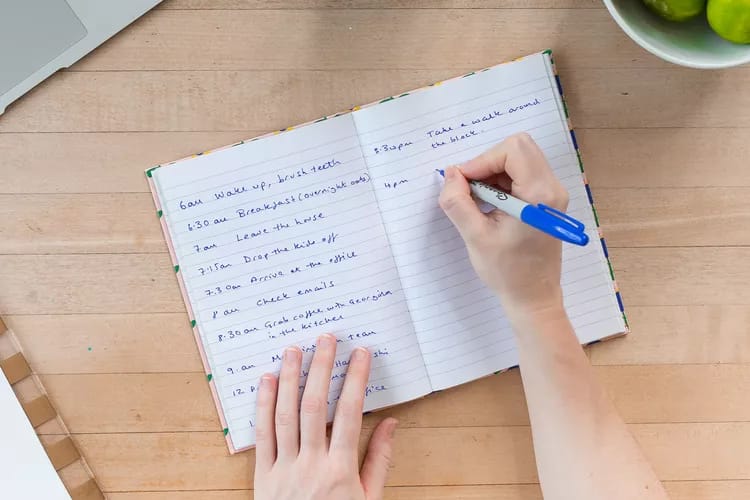 6am Wake up, brush teeth
6.30am Breakfast (overnight oats)
7am Leave the house
7:15am Drop the kids off
7.30am Arrive at the office
8am Check emails
8.30am Grab coffee with Georgina
in the kitchen
9.am M team
12 p
3.30pm Take a walk around
the block.
4pm